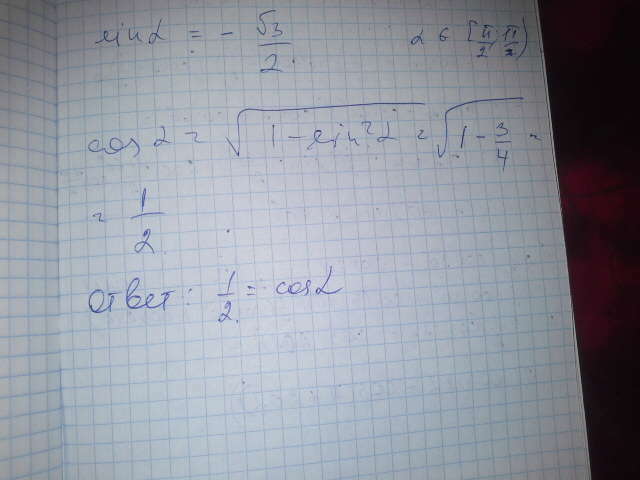 sin α = - √3/2 α ∈ [π/2; π/2)
cos α = √(1 - sin²α) = √(1 - 3/4) =
= 1/2
ответ: 1/2 = cos α